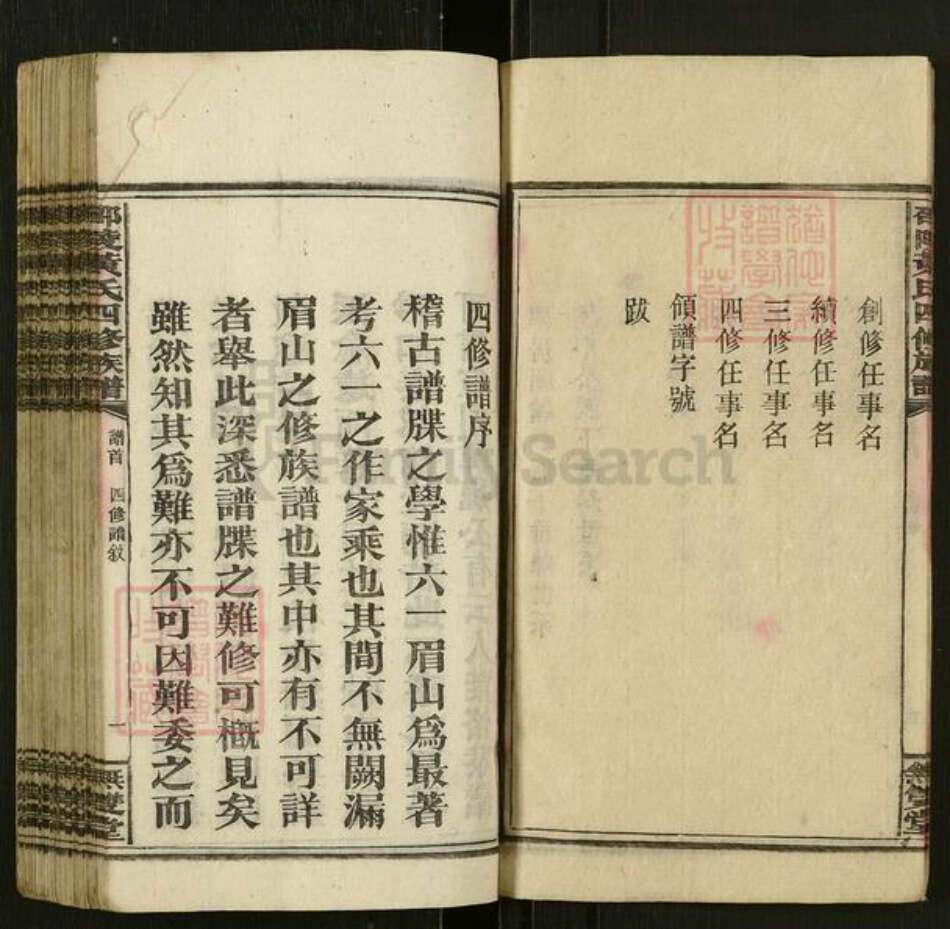 創修任事名
續修任事名
三修任事名
四修任事名
領譜字號
跋
四修譜序
稽古譜牒之學惟六一眉山為最著
考六一之作家乘也其間不無闕漏
眉山之修族譜也其中亦有不可詳
者舉此深悉譜牒之難修可概見矣
雖然知其為難亦不可因難委之而
邵陵黃氏四修族譜
譜首 四修譜敘
一
無雙堂
FamilySearch